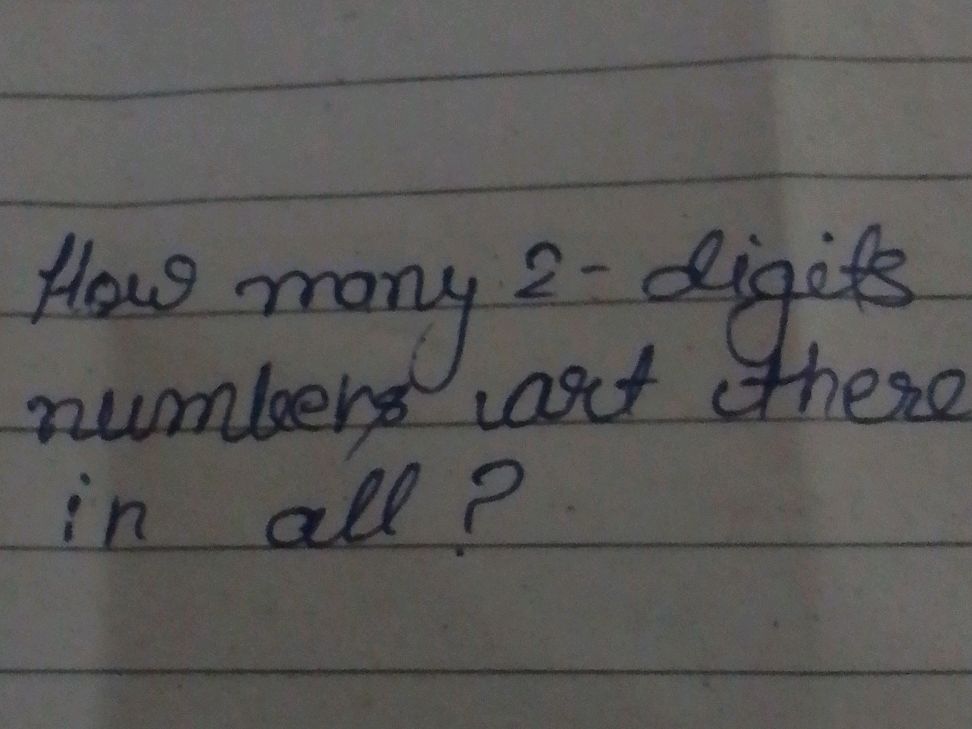 How many 2-digits
numbers art there
in all?